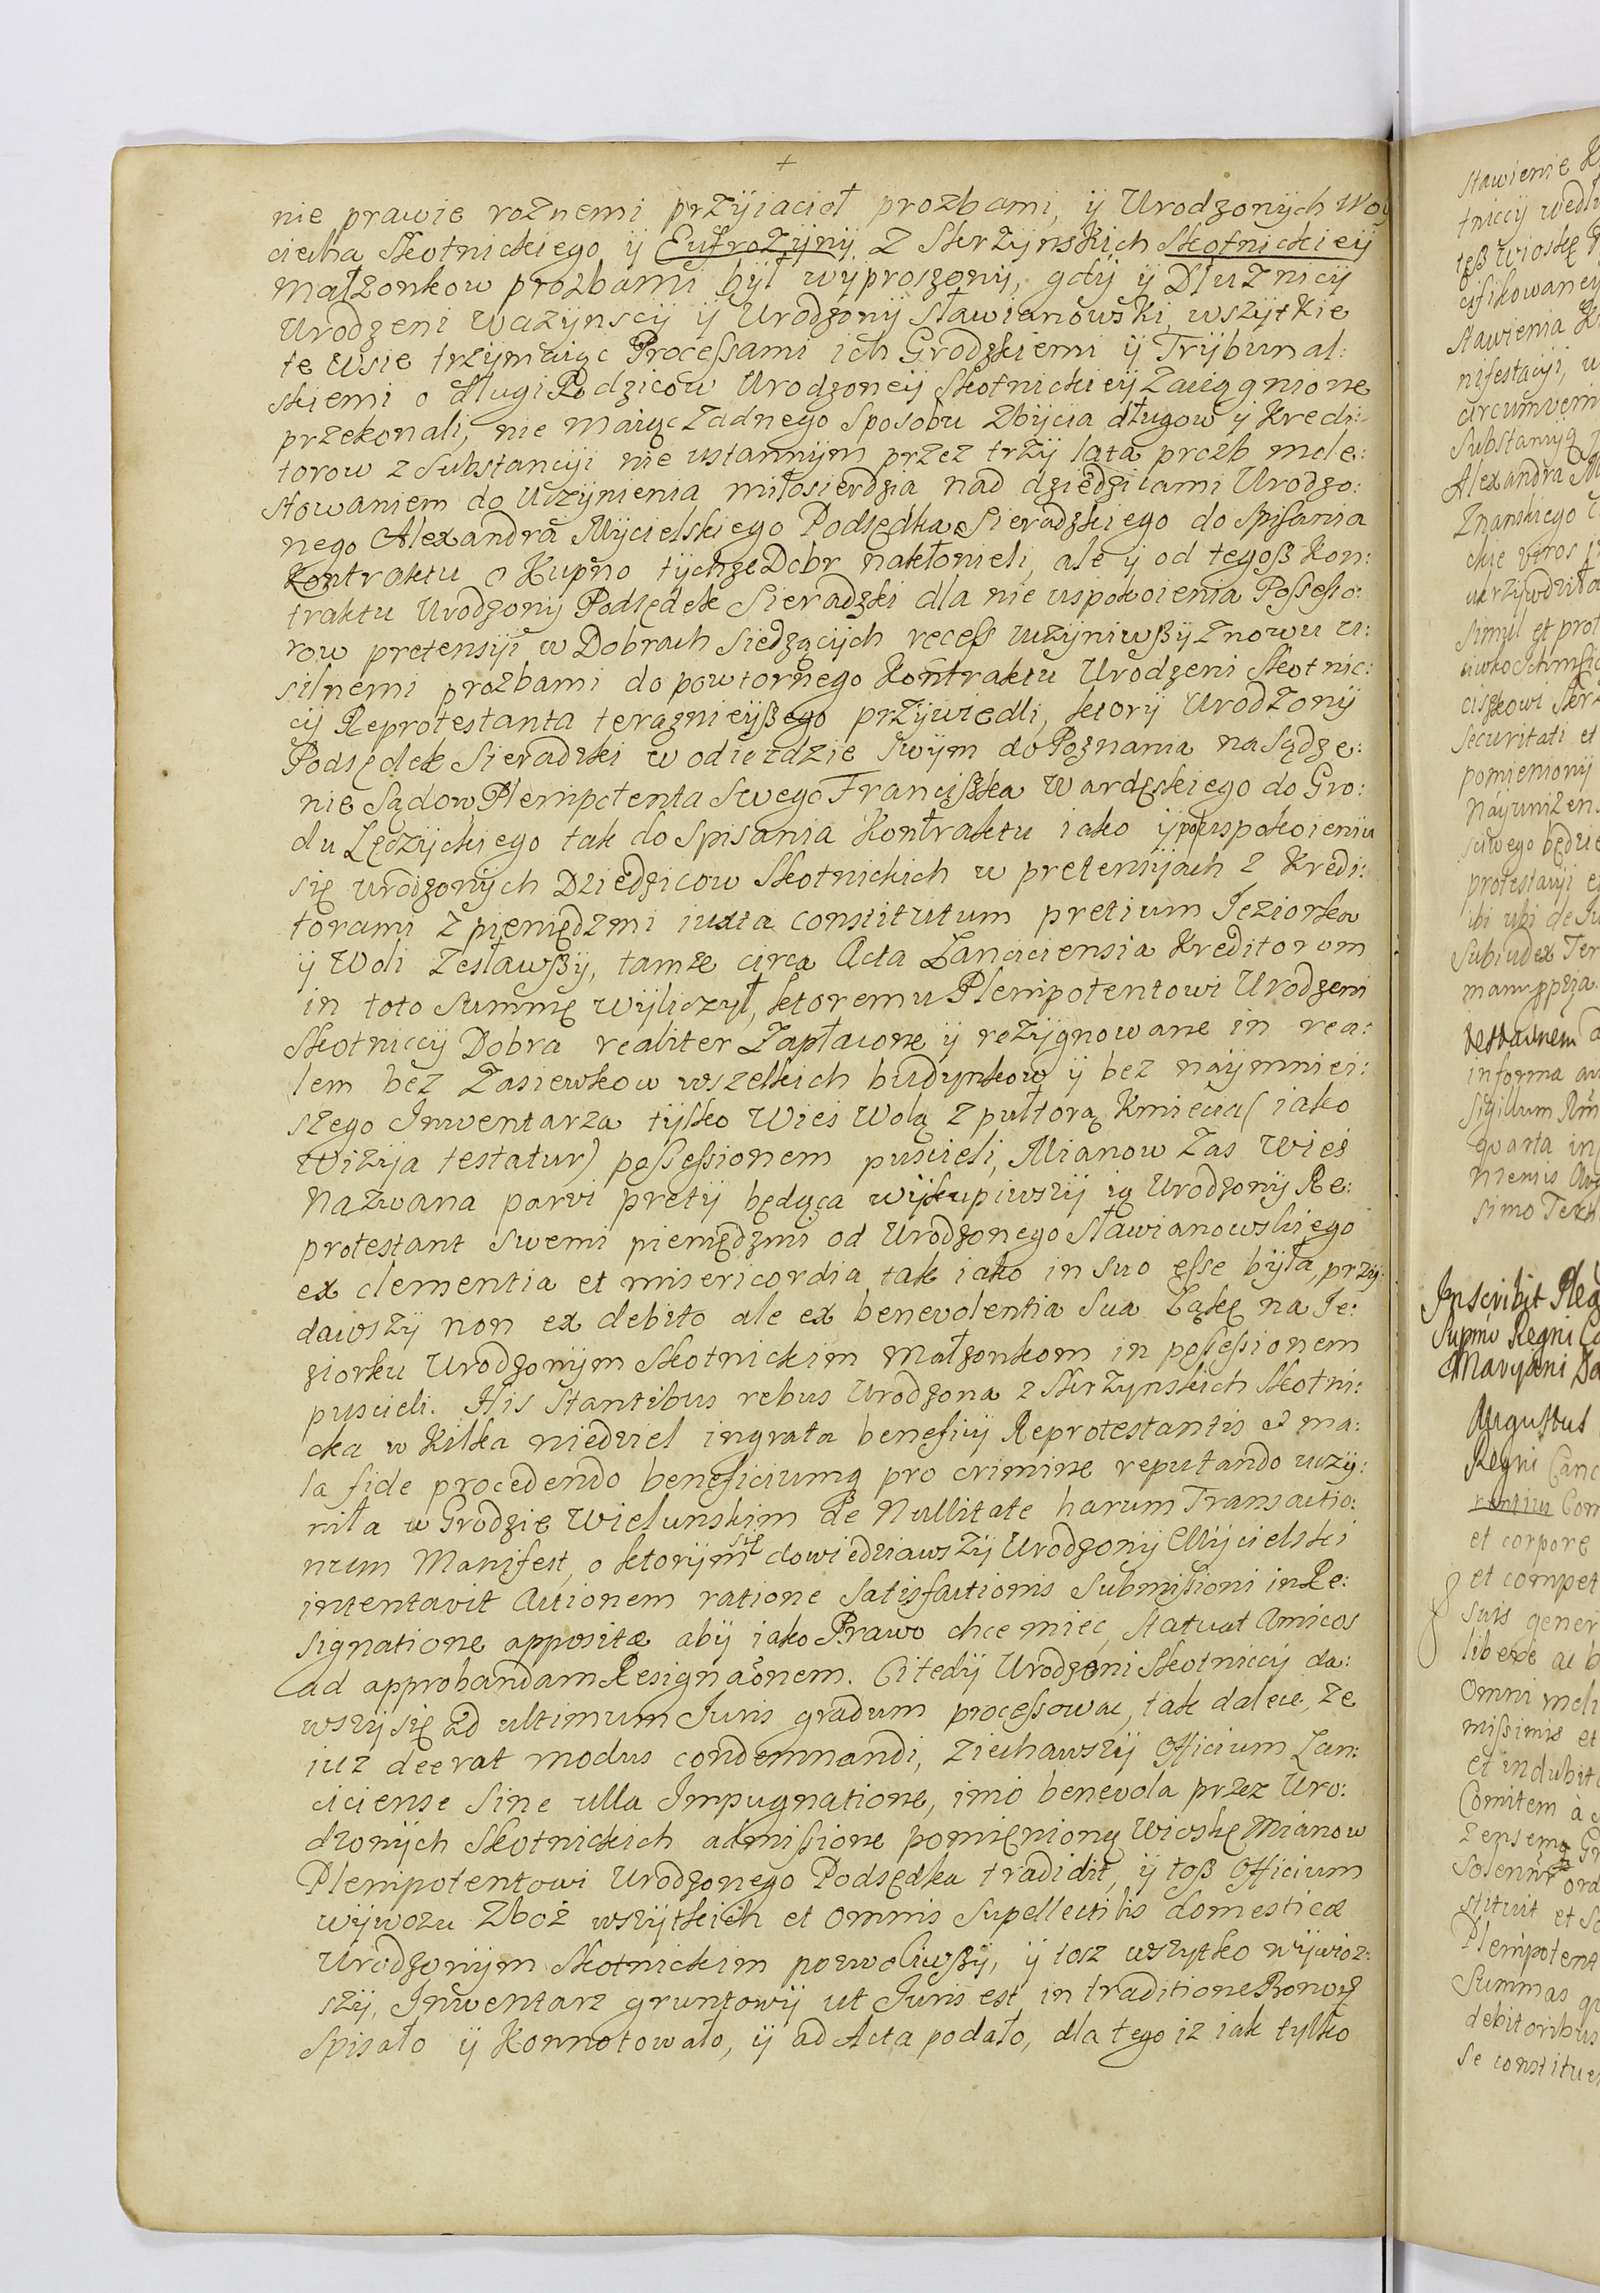 +
nie prawie roznemi przyiacioł prozbami, ÿ Urodzonÿch Woÿ
ciecha Skotnickiego ÿ Eufrozÿnÿ z Skrzÿnskich Skotnickieÿ
Małzonkow prozbami bÿł wÿproszonÿ, gdÿ ÿ Dłuznicÿ
Urodzeni Wazÿnscÿ ÿ Urodzonÿ Sławianowski, wszÿtkie
te Wsie trzÿmaiąc Processami ich Grodzkiemi ÿ Trÿbunal:
skiemi o długi Rodzicow Urodzoneÿ Skotnickieÿ zaciągnione
przekonali, nie maiąc zadnego sposobu zbÿcia długow ÿ Kredi:
torow z Substancÿi nie ustannÿm przez trzÿ lata prozb mole:
stowaniem do Uczÿnienia miłosierdzia nad dziedzicami Urodzo:
nego Alexandra Mÿcielskiego Podsędka Sieradzkiego do spisania
Kontraktu o Kupno tÿchze Dobr nakłonieli, ale ÿ od tegoß Kon:
traktu Urodzonÿ Podsędek Sieradzki dla nie uspokoienia Possesso:
row pretensÿi w Dobrach siedzącÿch recess uczÿniwßÿ znowu u:
silnemi prozbami do powtornego Kontraktu Urodzeni Skotnic:
cÿ Reprotestanta teraznieÿßego przÿwiedli, ktorÿ Urodzonÿ
Podsędek Sieradzki w odiezdzie swÿm do Poznania na Sądze:
nie Sądow Plenipotenta swego Franciszka Wardęskiego do Gro:
du Lędzÿckiego tak do spisania Kontraktu iako ÿ po uspokoieniu
się urodzonÿch Dziedzicow Skotnickich w pretensÿach z Kredi:
torami z pieniędzmi iuxta constitutum pretium Jeziorka
ÿ Woli zesławßÿ, tamze circa Acta Lanciciensia Kreditorom
in toto Summę wÿliczÿł, ktoremu Plenipotentowi Urodzeni
Skotniccÿ Dobra realiter Zapłacone ÿ rezÿgnowane in rea:
lem bez Zasiewkow wszelkich budÿnkow ÿ bez naÿmniei:
szego Inwentarza tÿlko Wieś Wolą z pułtorą Kmiecia (iako
Wizÿja testatur) possessionem puscieli, Mianow Zas Wieś
Nazwana parvi pretÿ będąca wÿkupiwszÿ ią Urodzonÿ Re:
protestant swemi pieniędzmi od Urodzonego Sławianowskiego
ex clementia et misericordia tak iako in suo esse bÿła, przÿ:
dawszÿ non ex debito ale ex benevolentia sua Łąkę na Je:
ziorku Urodzonÿm Skotnickim Małzonkom in possessionem
puscieli. His stantibus rebus Urodzona z Skrzÿnskich Skotni:
cka w Kilka niedziel ingrata beneficÿ Reprotestantis et ma:
la fide procedendo beneficiumq pro crimine reputando uczÿ:
niła w Grodzie Wielunskim de Nullitate harum Transactio:
num Manifest, o ktorÿm się dowiedziawszÿ Urodzonÿ Mÿcielski
intentavit Actionem ratione satisfactionis submissioni in Re:
signatione appositæ abÿ iako Prawo chce miec, statuat Amicos
ad approbandam Resignaõnem. Ci tedÿ Urodzeni Skotniccÿ da:
wszÿ się ad ultimum Juris gradum processowac, tak dalece, ze
iuz deerat modus condemnandi, ziechawszÿ Officium Lan:
ciciense sine ulla Impugnatione, imo benevola przez Uro:
dzonÿch Skotnickich admissione pomienioną Wioskę Mianow
Plenipotentowi Urodzonego Podsędka tradidit, ÿ toß Officium
wÿwozu Zboż wszÿtkich et omnis supellectilis domesticæ
Urodzonÿm Skotnickim pozwoliwßÿ, ÿ tosz wszÿtko wÿwioz:
szÿ, Inwentarz gruntowÿ ut Juris est in traditione Bonorũ
spisało ÿ Konnotowało, ÿ ad Acta podało, dla tego iz iak tÿlko
stawienie
tniccÿ wedłu
teß wioskę
cifikowaneÿ
stawienia
nifestacÿi, w
circumveni
Substancÿą
Alexandra
Znanskiego
ukrzÿwdziła
simul et prot
ciszkowi
securitati et
pomienionÿ
Naÿunizen
swego będzie
protestacÿi
ibi ubi de Ju
Subiudex Ter
informa
Sigillum
quarta in
simo
Inscribit Ple
Supmi Regni Ca
Marÿani
Augustus
Regni Canc
Com
et corpore
et compet
suis gener
libere ac b
Omni meli
missimis et
et indubit
Comitem à
stituit et
Plenipotent
Summas qu
debitoribus
se constitue